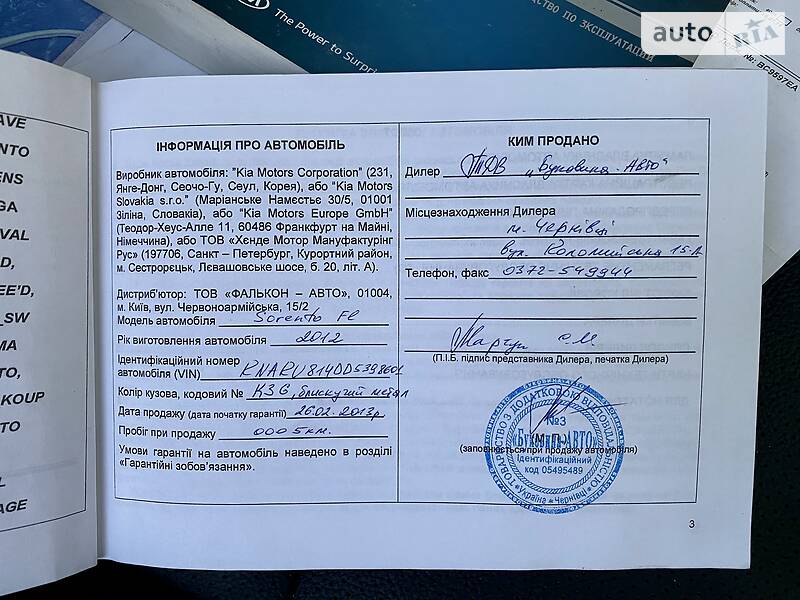 The Power to Surpri
СТВО ПО ЭКСПЛУАТАЦИИ
auto RIA
№: BC9597EA
AVE
NTO
ENS
GA
VAL
D,
EE'D,
_SW
MA
TO,
KOUP
TO
L
AGE
ІНФОРМАЦІЯ ПРО АВТОМОБІЛЬ
Виробник автомобіля: "Kia Motors Corporation" (231,
Янге-Донг, Сеочо-Гу, Сеул, Корея), або "Kia Motors
Slovakia s.r.o." (Маріанське Намєстьє 30/5, 01001
Зіліна, Словакія), або "Kia Motors Europe GmbH"
(Теодор-Хеус-Алле 11, 60486 Франкфурт на Майні,
Німеччина), або ТОВ «Хєнде Мотор Мануфактурінг
Рус» (197706, Санкт – Петербург, Курортний район,
м. Сестрорєцьк, Лєвашовське шосе, б. 20, літ. А).
Дистриб'ютор: ТОВ «ФАЛЬКОН – АВТО», 01004,
м. Київ, вул. Червоноармійська, 15/2
Модель автомобіля Sorento FL
Рік виготовлення автомобіля 2012
Ідентифікаційний номер
автомобіля (VIN) KNARU814DD5398601
Колір кузова, кодовий № K3G, блискучий метал
Дата продажу (дата початку гарантії) 26.02.2013р
Пробіг при продажу 0005км.
Умови гарантії на автомобіль наведено в розділі
«Гарантійні зобов'язання».
КИМ ПРОДАНО
Дилер ТДВ „Буковина-Авто"
Місцезнаходження Дилера
м. Чернівці
вул. Коломийська 15-А
Телефон, факс 0372-549944
(П.І.Б. підпис представника Дилера, печатка Дилера)
ТОВАРИСТВО З ДОДАТКОВОЮ ВІДПОВІДАЛЬНІСТЮ
№3
«Буковина-АВТО»
(М.П.)
(заповнюється при продажу автомобіля)
Ідентифікаційний
код 05495489
Україна * Чернівці
3